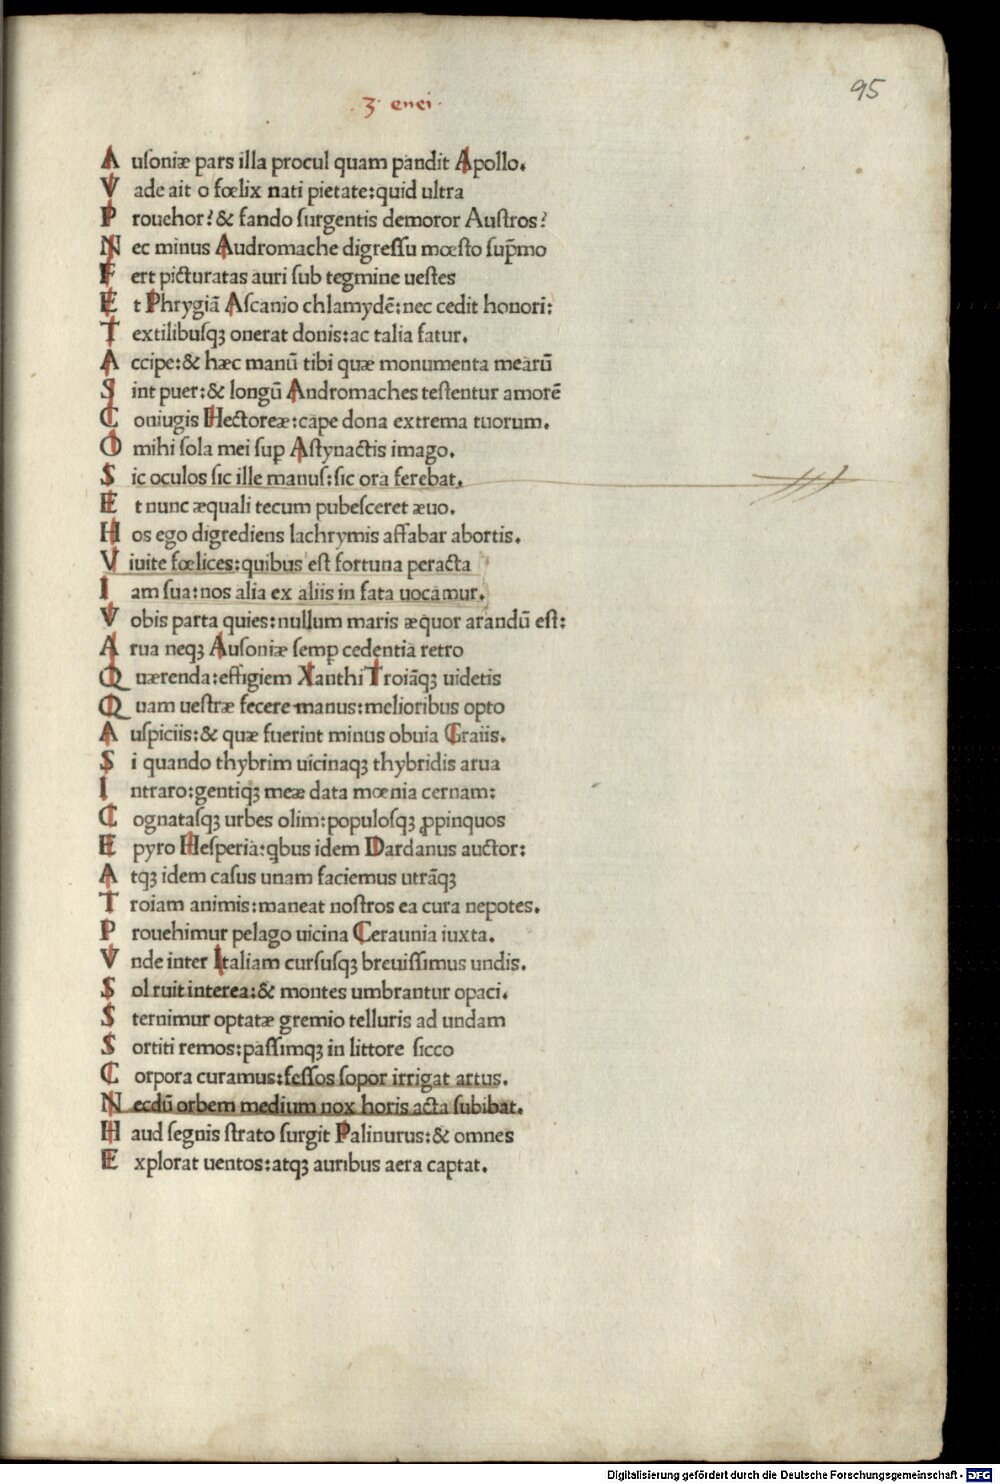 95
.3. enei.
A uſoniæ pars illa procul quam pandit Apollo.
V ade ait o fœlix nati pietate: quid ultra
P rouehor? & fando ſurgentis demoror Auſtros?
N ec minus Audromache digreſſu mœſto sup̄mo
F ert picturatas auri ſub tegmine ueſtes
E t Phrygiā Aſcanio chlamydē: nec cedit honori:
T extilibuſqꝫ onerat donis: ac talia fatur.
A ccipe: & hæc manū tibi quæ monumenta mearū
S int puer: & longū Andromaches teſtentur amorē
C oniugis Hectoreæ: cape dona extrema tuorum.
O mihi ſola mei ſuꝑ Aſtynactis imago.
S ic oculos ſic ille manuſ: ſic ora ferebat.
E t nunc æquali tecum pubeſceret æuo.
H os ego digrediens lachrymis affabar abortis.
V iuite fœlices: quibus eſt fortuna peracta
I am ſua: nos alia ex aliis in fata uocamur.
V obis parta quies: nullum maris æquor arandū eſt:
A rua neqꝫ Auſoniæ ſemꝑ cedentia retro
Q uærenda: effigiem Xanthi Troiāqꝫ uidetis
Q uam ueſtræ fecere manus: melioribus opto
A uſpiciis: & quæ fuerint minus obuia Graiis.
S i quando thybrim uicinaqꝫ thybridis arua
I ntraro: gentiqꝫ meæ data mœnia cernam:
C ognataſqꝫ urbes olim: populoſqꝫ ꝓpinquos
E pyro Heſperia: qbus idem Dardanus auctor:
A tqꝫ idem caſus unam faciemus utrāqꝫ
T roiam animis: maneat noſtros ea cura nepotes.
P rouehimur pelago uicina Ceraunia iuxta.
V nde inter Italiam curſuſqꝫ breuiſſimus undis.
S ol ruit interea: & montes umbrantur opaci.
S ternimur optatæ gremio telluris ad undam
S ortiti remos: paſſimqꝫ in littore ſicco
C orpora curamus: feſſos ſopor irrigat artus.
N ecdū orbem medium nox horis acta ſubibat.
H aud ſegnis ſtrato ſurgit Palinurus: & omnes
E xplorat uentos: atqꝫ auribus aera captat.
Digitalisierung gefördert durch die Deutsche Forschungsgemeinschaft - DFG